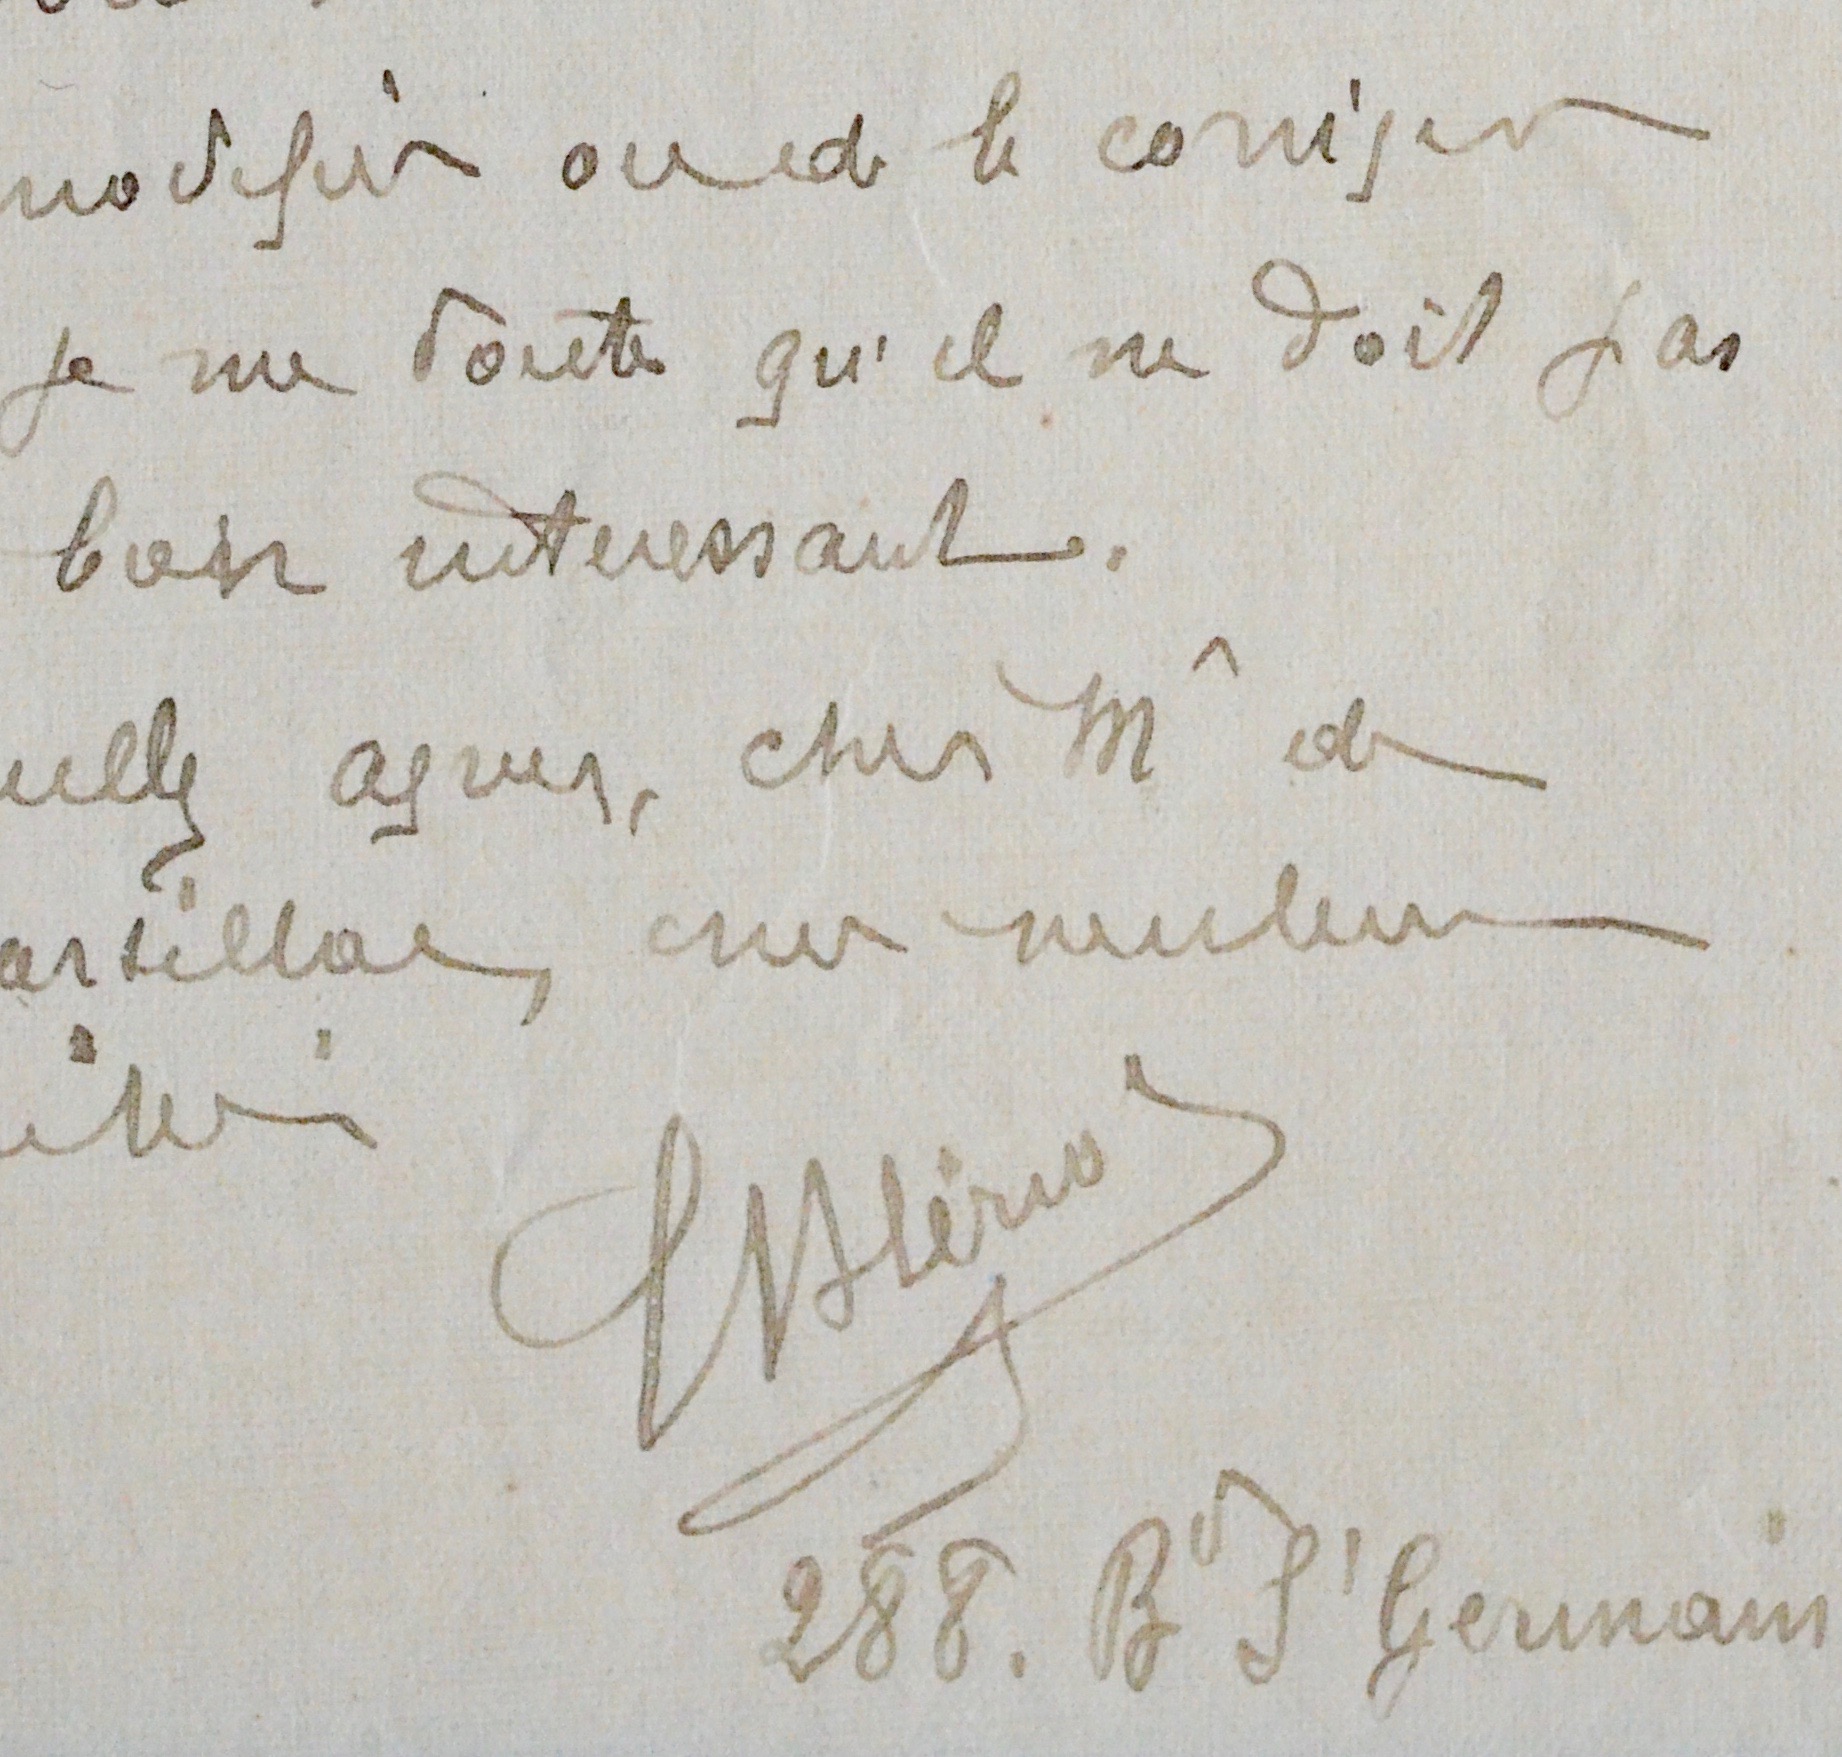 modifier ou de le corriger
je me doute qu'il ne doit pas
bien interessant.
uillez agréer, cher Mr de
arsillac, mes meilleurs
288. Bd St Germain